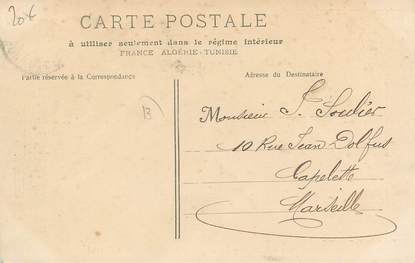 20€
CARTE POSTALE
à utiliser seulement dans le régime intérieur
FRANCE ALGÉRIE - TUNISIE
Partie réservée à la Correspondance
Adresse du Destinataire
13
Monsieur J. Soulier
10 Rue Jean Dolfus
Capelette
Marseille